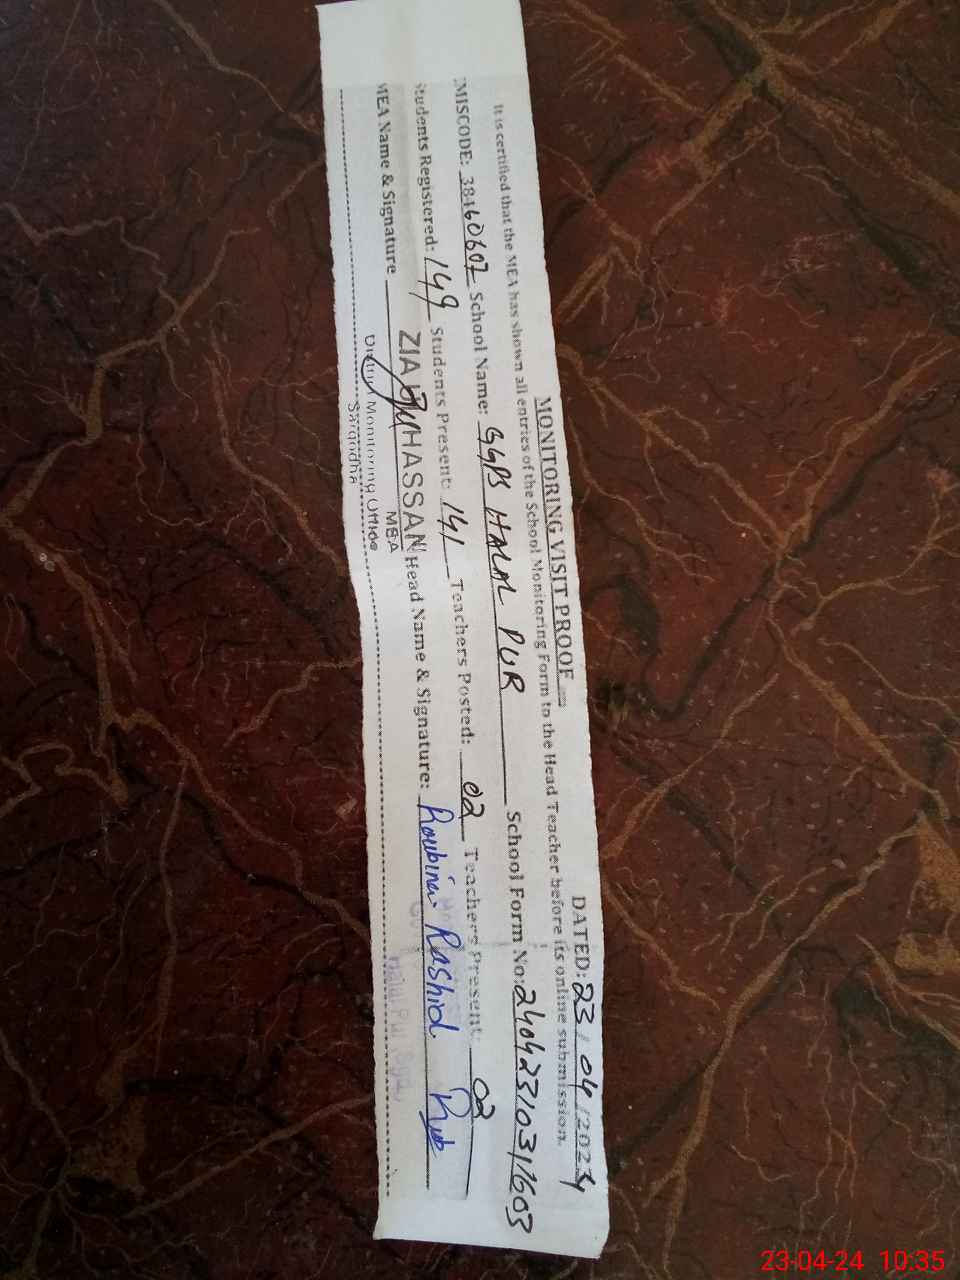 MONITORING VISIT PROOF
DATED: 23/04/2024
It is certified that the MEA has shown all entries of the School Monitoring Form to the Head Teacher before its online submission.
EMISCODE: 38460607 School Name: GGPS HALAL PUR School Form No: 24042310311603
Students Registered: 149 Students Present: 141 Teachers Posted: 02 Teachers Present: 02
MEA Name & Signature ZIA HASSAN Head Name & Signature: Roubina Rashid
MEA
District Monitoring Office
Sargodha
Halal Pur Sgd
23-04-24 10:35